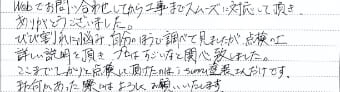 Webでお問い合わせしてから工事までスムーズに対応して頂き、
ありがとうございました。
ひび割れに悩み、自分のほうで調べて見ましたが、点検の上
詳しい説明を頂き、プロはすごいなと関心致しました。
ここまでしっかりと点検して頂けたのは 塗装さんだけです。
また何かあった際にはよろしくお願いいたします。